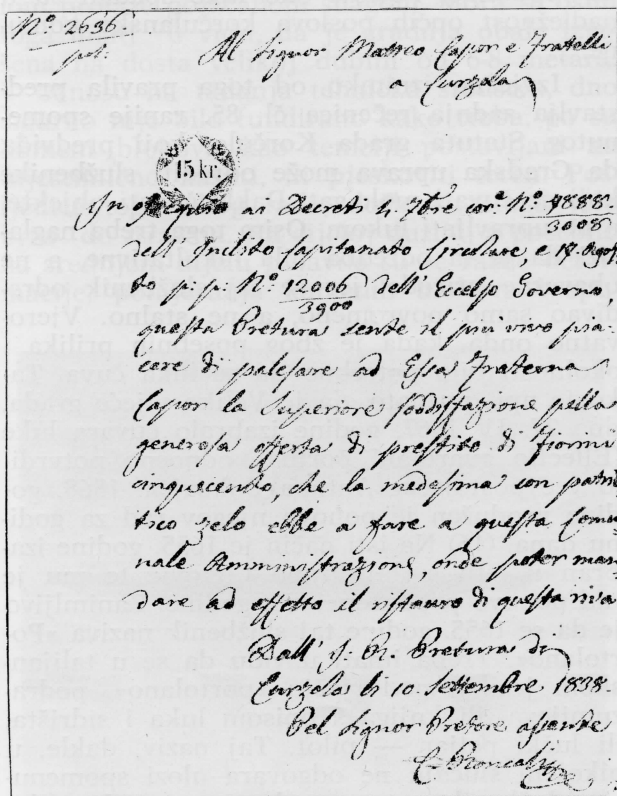 N.º 2636.
pol.
Al Signor Matteo Capor e Fratelli
a Curzola
15 kr.
In seguito ai Decreti 4. 7bre corr. N.º 4888.
3008
dell' Inclito Capitanato Circolare, e 18. Agos
to p: p: N.º 12006 dell' Eccelso Governo,
3900
questa Pretura sente il più vivo pia-
cere di palesare ad Essa Fraterna
Capor la Superiore soddisfazione pella
generosa offerta di prestito di fiorini
cinquecento, che la medesima con patrio
tico zelo ebbe a fare a questa Comu
nale Amministrazione, onde poter man
dare ad effetto il ristauro di questa riva
Dall' I. R. Pretura di
Curzola li 10. Settembre 1838.
Pel Signor Pretore assente